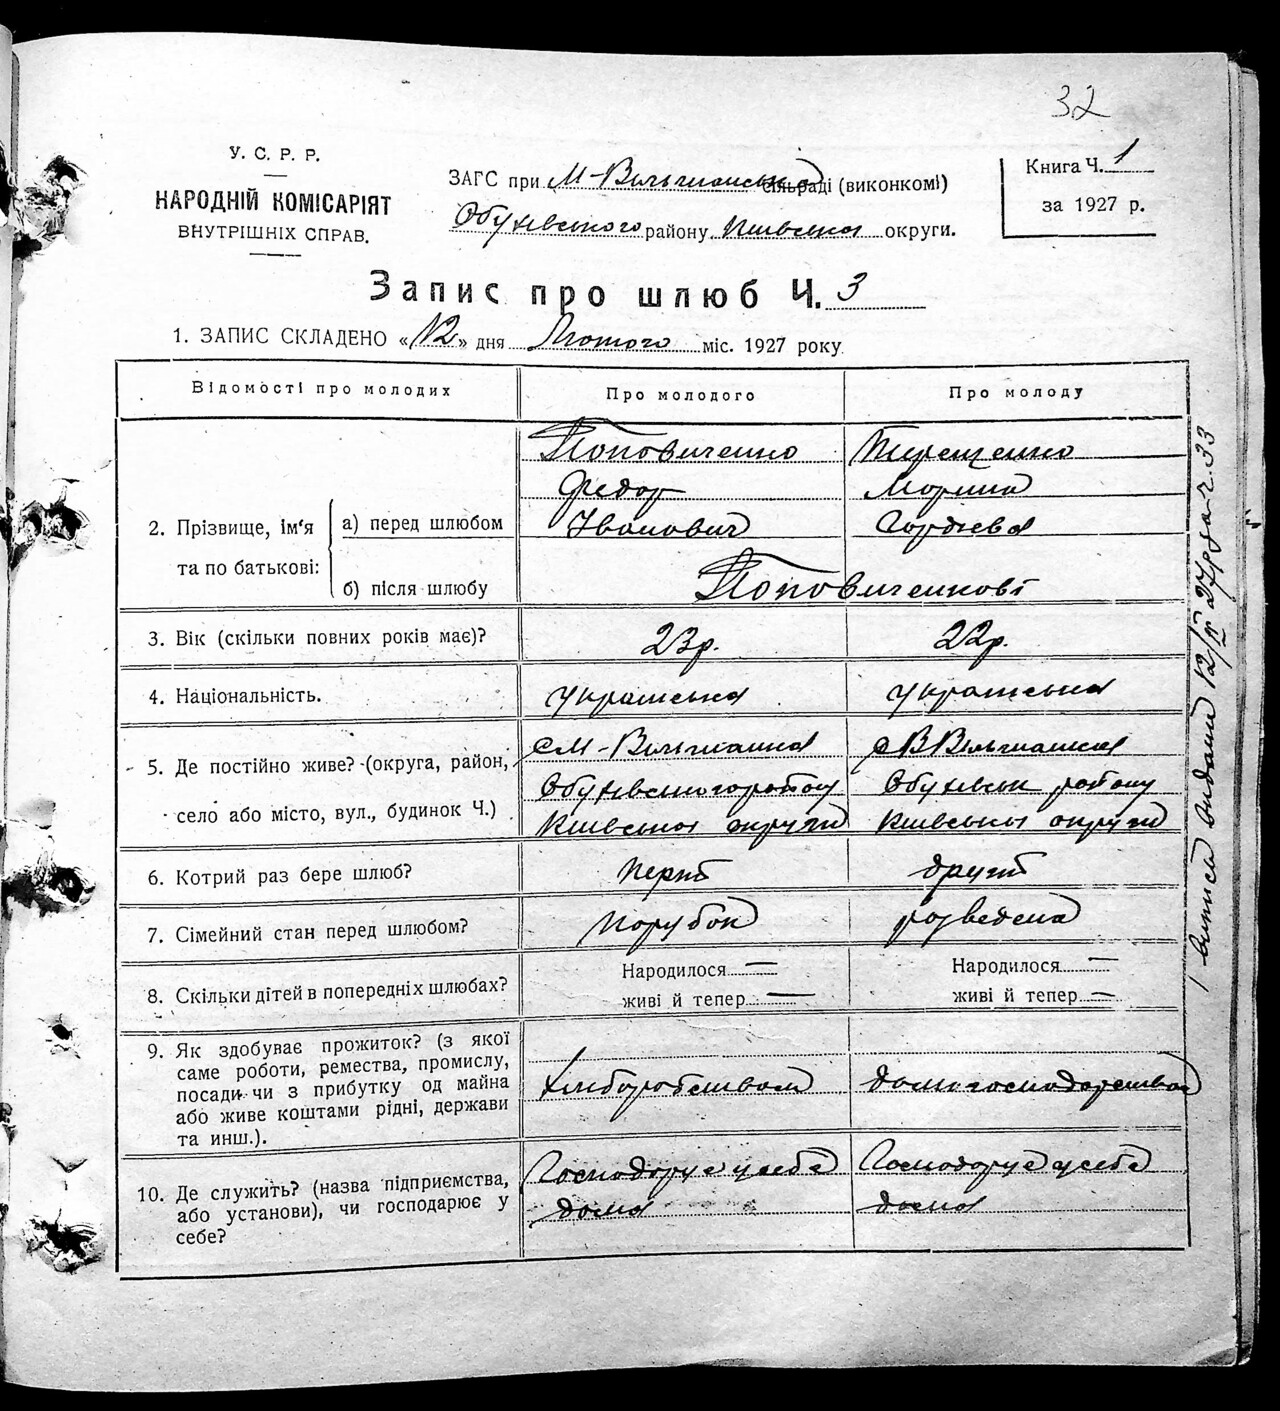 32
У. С. Р. Р.
НАРОДНІЙ КОМІСАРІЯТ
ВНУТРІШНІХ СПРАВ.
ЗАГС при М-Вільшанській сільраді (виконкомі)
Обухівського району Київської округи.
Книга Ч. 1
за 1927 р.
Запис про шлюб Ч. 3
1. ЗАПИС СКЛАДЕНО «12» дня Лютого міс. 1927 року
Відомості про молодих Про молодого Про молоду
2. Прізвище, ім'я та по батькові:
а) перед шлюбом
Поповиченко Терещенко
Федор Морина
Іванович Гордієва
б) після шлюбу Поповиченкові
3. Вік (скільки повних років має)? 23р. 22р.
4. Національність. українська українська
5. Де постійно живе? (округа, район,
село або місто, вул., будинок Ч.)
с М-Вільшанка с В Вільшанка
Обухівського району Обухівськ району
Київської округи Київської округи
6. Котрий раз бере шлюб? перший другий
7. Сімейний стан перед шлюбом? Парубок розведена
8. Скільки дітей в попередніх шлюбах?
Народилося — Народилося —
живі й тепер — живі й тепер —
9. Як здобуває прожиток? (з якої
саме роботи, ремества, промислу,
посади чи з прибутку од майна
або живе коштами рідні, держави
та инш.).
хліборобством домогосподарством
10. Де служить? (назва підприємства,
або установи), чи господарює у
себе?
Господарує у себе Господарує у себе
дома дома
Виписа видана 12/II 27р за ч. 33